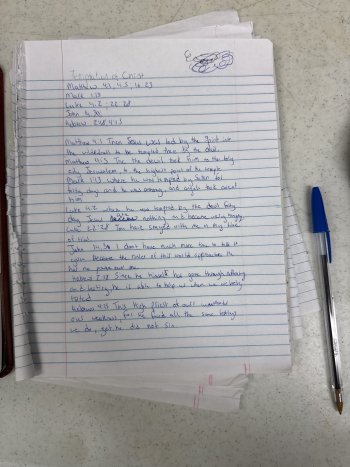 Temptation of Christ
Matthew 4:1, 4:5,
Mark 1:13
Luke 4:2, 22:28
John
Hebrew 2:18, 4:15
Matthew 4:1 Then Jesus was led by the Spirit
the wilderness to be tempted there by the devil.
Matthew 4:5 The the devil took him to the holy
city, Jerusalem, to the highest point of the temple
Mark 1:13 where he was tempted by Satan for
forty days and he was among, and angels took care of
him
Luke 4:2 where he was tempted by the devil forty
days Jesus nothing and became very hungry.
Luke 22:28 You have stayed with me in my time
of trial
John 14:30 I dont have much more time to talk to
because the ruler of this world approaches He
has no power over me
Hebrew 2:18 Since he himself has gone through suffering
and testing, he is able to help us when we are being
tested
Hebrews 4:15 This High Priest of ours
our weakness, for he faced all the same testings
we do, yet he did not sin